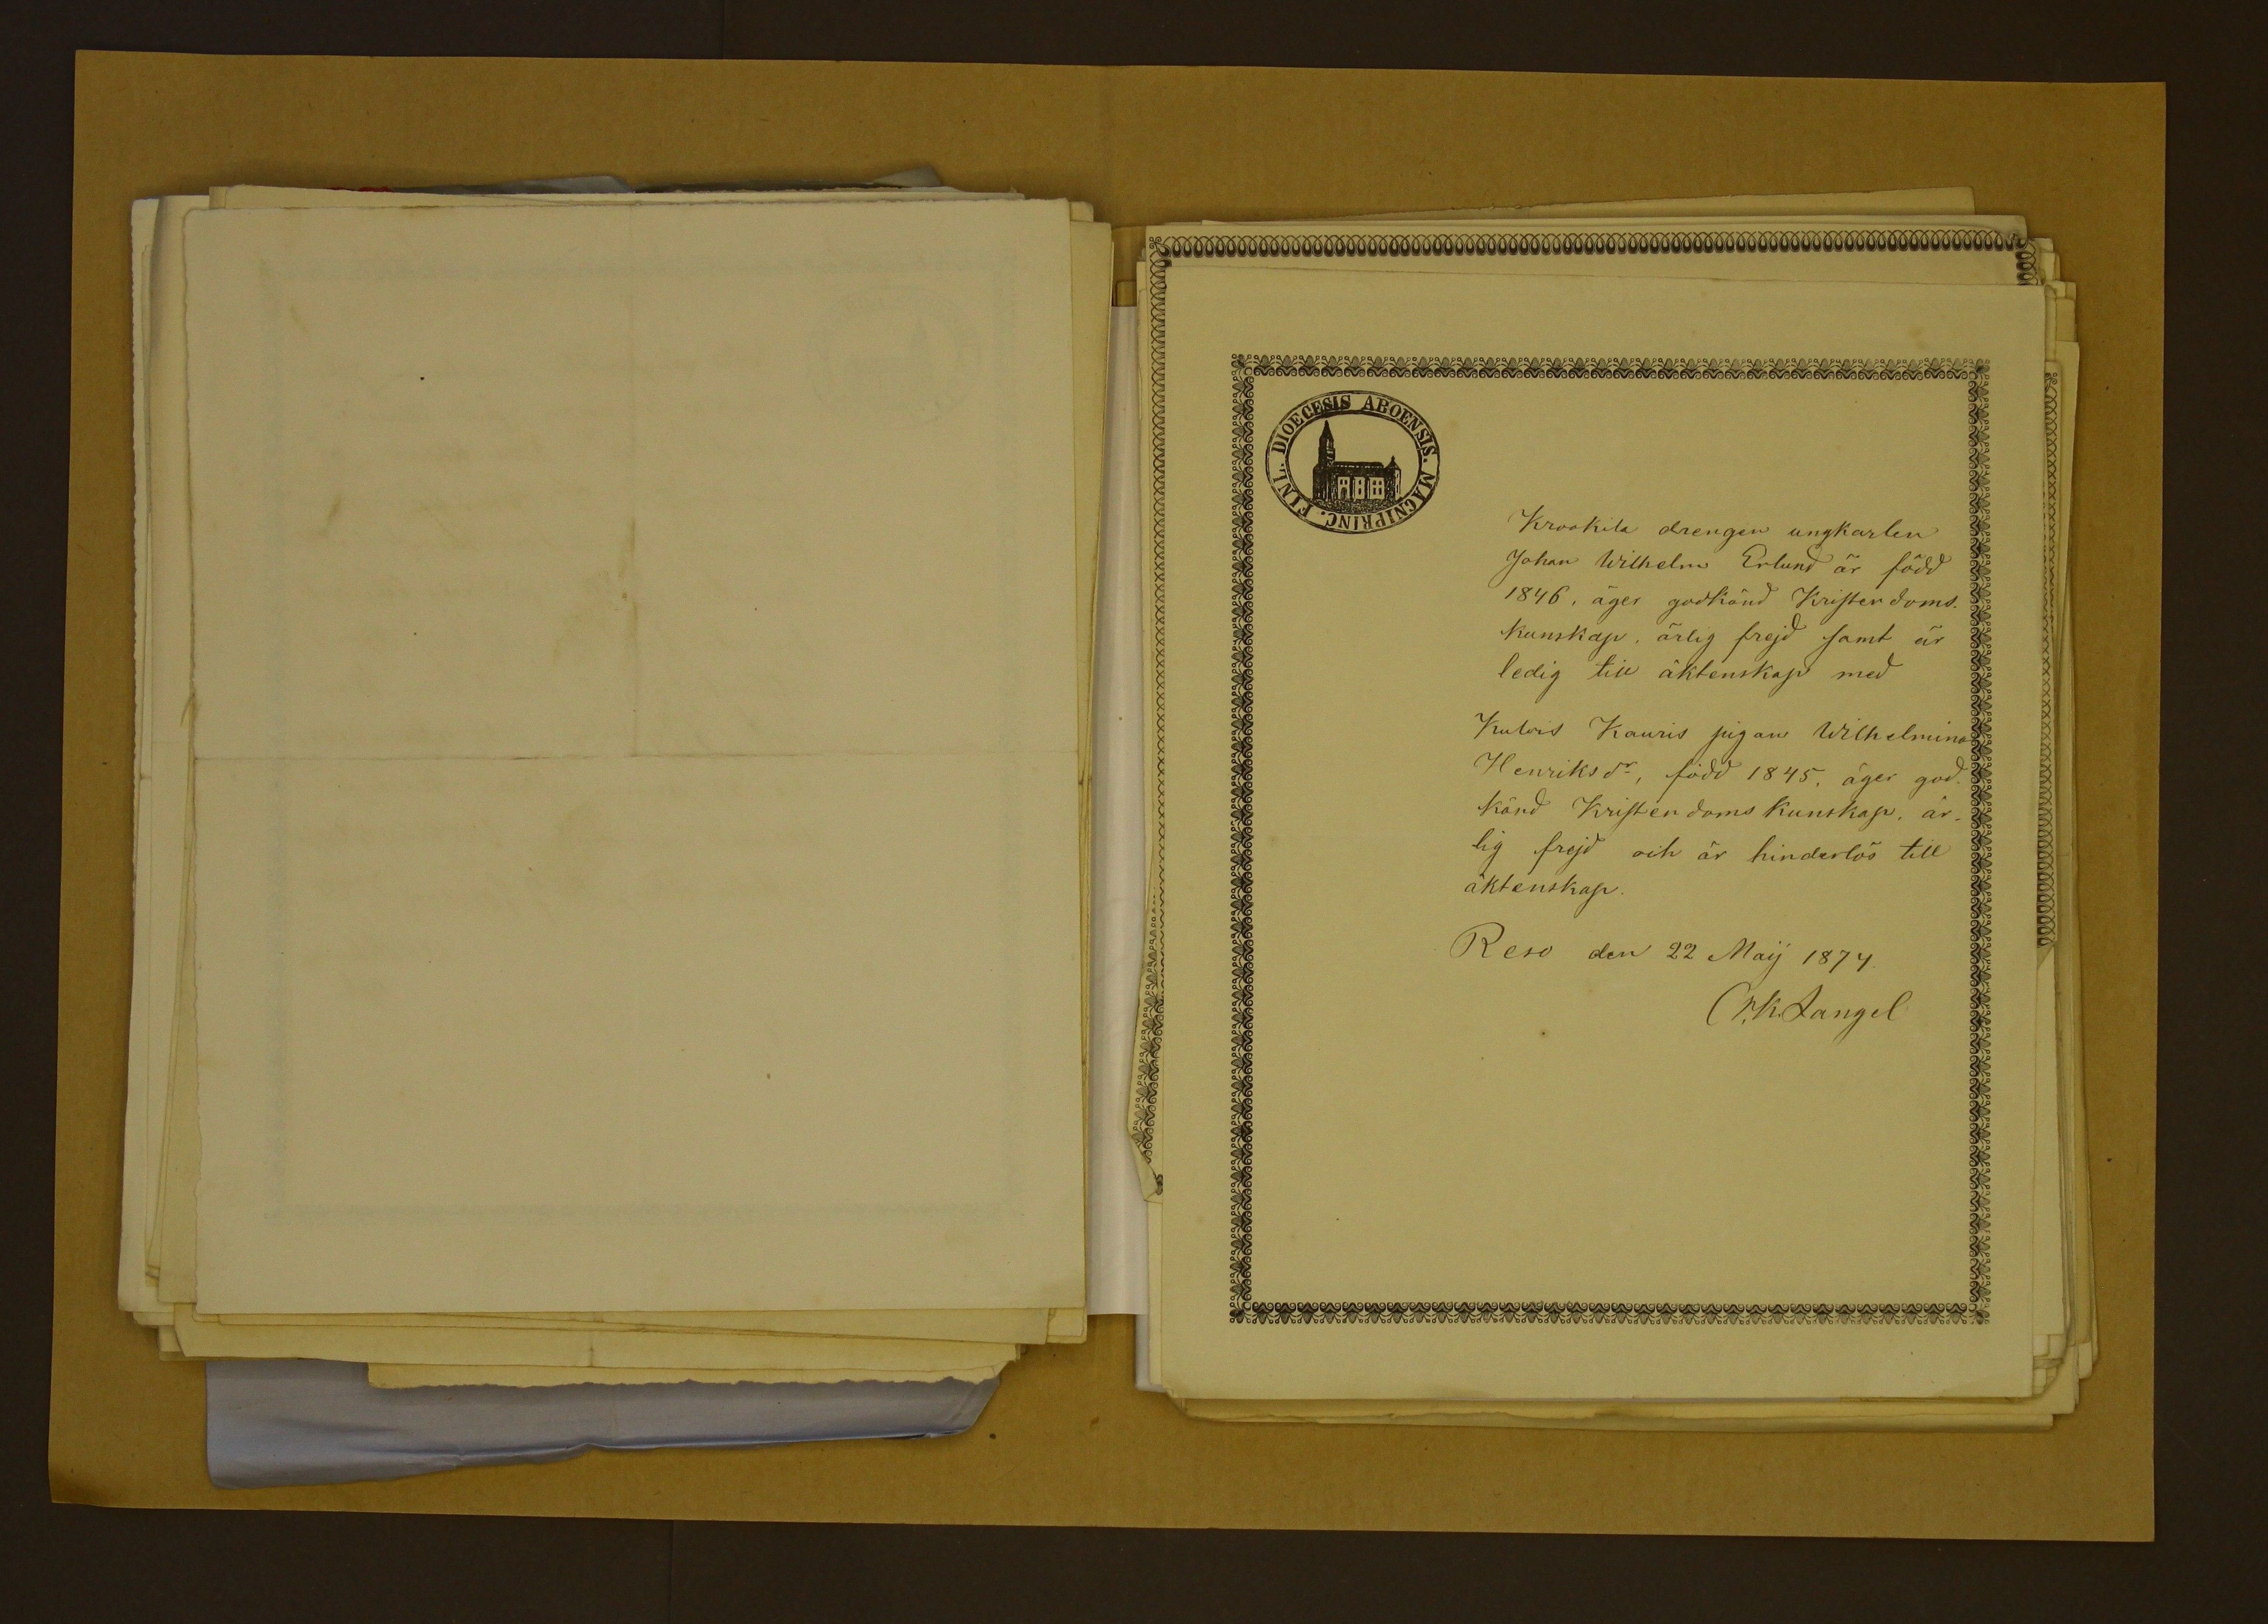 DIOECESIS ABOENSIS. MAGNIPRINC. FINL.
Krookila drengen ungkarlen
Johan Wilhelm Erlund är född
1846, äger godkänd Kristendoms-
kunskap, ärlig frejd samt är
ledig till äktenskap med
Kulois Kauris pigan Wilhelmina
Henriksdr, född 1845, äger god-
känd Kristendoms kunskap, är-
lig frejd och är hinderlös till
äktenskap.
Reso den 22 Maij 1874.
Langel